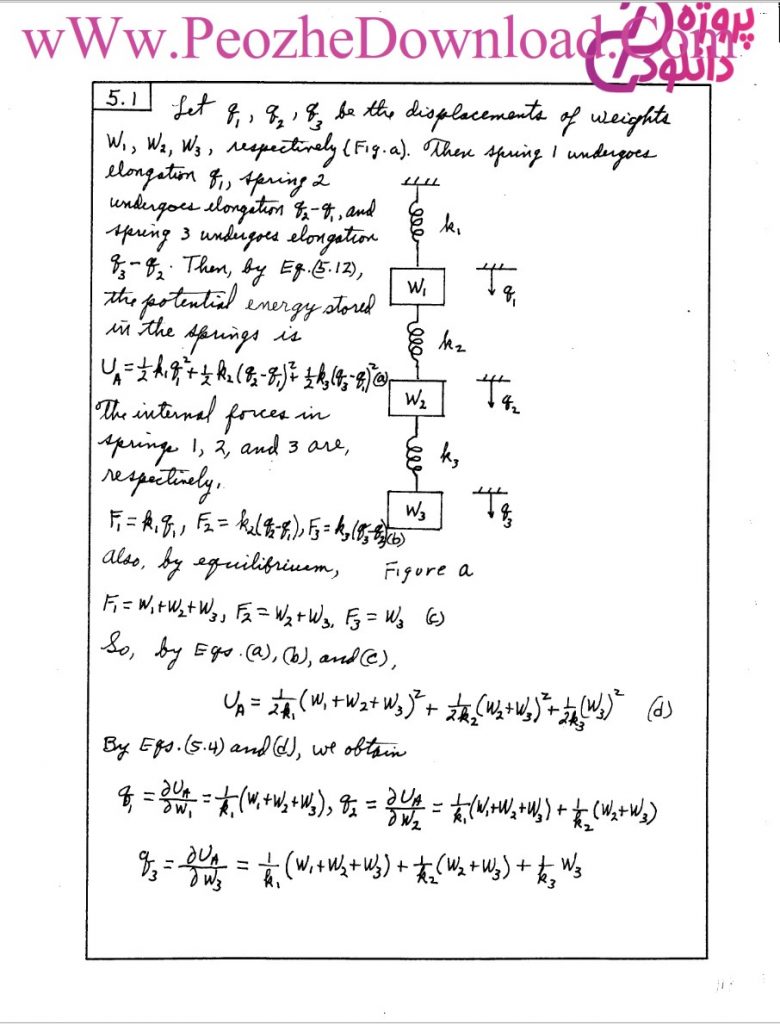 wWw.PeozheDownload.Com
پروژه
دانلود
5.1 Let q₁, q₂, q₃ be the displacements of weights
W₁, W₂, W₃, respectively (Fig. a). Then spring 1 undergoes
elongation q₁, spring 2
undergoes elongation q₂-q₁, and
spring 3 undergoes elongation
q₃-q₂. Then, by Eq. (5.12),
the potential energy stored
in the springs is
U_A = ½ k₁q₁² + ½ k₂(q₂-q₁)² + ½ k₃(q₃-q₂)² (a)
The internal forces in
springs 1, 2, and 3 are,
respectively,
F₁ = k₁q₁, F₂ = k₂(q₂-q₁), F₃ = k₃(q₃-q₂) (b)
k₁
W₁
q₁
k₂
W₂
q₂
k₃
W₃
q₃
Figure a
Also, by equilibrium,
F₁ = W₁+W₂+W₃, F₂ = W₂+W₃, F₃ = W₃ (c)
So, by Eqs. (a), (b), and (c),
U_A = 1/2k₁ (W₁+W₂+W₃)² + 1/2k₂ (W₂+W₃)² + 1/2k₃ (W₃)² (d)
By Eqs. (5.4) and (d), we obtain
q₁ = ∂U_A/∂W₁ = 1/k₁ (W₁+W₂+W₃), q₂ = ∂U_A/∂W₂ = 1/k₁ (W₁+W₂+W₃) + 1/k₂ (W₂+W₃)
q₃ = ∂U_A/∂W₃ = 1/k₁ (W₁+W₂+W₃) + 1/k₂ (W₂+W₃) + 1/k₃ W₃